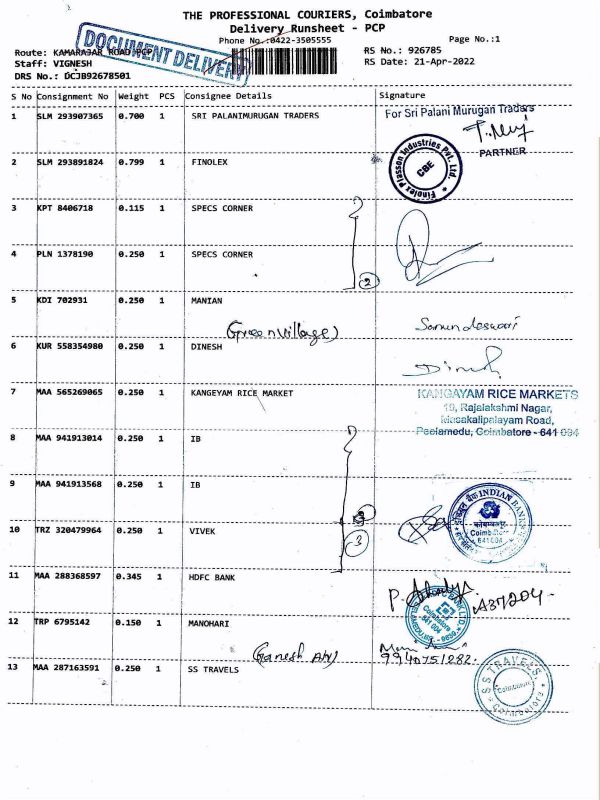 THE PROFESSIONAL COURIERS, Coimbatore
Delivery Runsheet - PCP
Phone No.:0422-3505555
Page No.:1
Route: KAMARAJAR ROAD PCP
RS No.: 926785
Staff: VIGNESH
RS Date: 21-Apr-2022
DRS No.: DCJB92678501
DOCUMENT DELIVERY
S No Consignment No Weight PCS Consignee Details Signature
1 SLM 293907365 0.700 1 SRI PALANIMURUGAN TRADERS
For Sri Palani Murugan Traders
PARTNER
2 SLM 293891824 0.799 1 FINOLEX
Finolex Plasson Industries Pvt. Ltd.
CBE
3 KPT 8406718 0.115 1 SPECS CORNER
4 PLN 1378190 0.250 1 SPECS CORNER
2
5 KDI 702931 0.250 1 MANIAN
(Green Village)
6 KUR 558354980 0.250 1 DINESH
Dinesh
7 MAA 565269065 0.250 1 KANGEYAM RICE MARKET
KANGAYAM RICE MARKETS
19, Rajalakshmi Nagar,
Masakalipalayam Road,
Peelamedu, Coimbatore - 641 004
8 MAA 941913014 0.250 1 IB
9 MAA 941913568 0.250 1 IB
INDIAN BANK
Coimbatore
641004
10 TRZ 320479964 0.250 1 VIVEK
3
11 MAA 288368597 0.345 1 HDFC BANK
A37204
Coimbatore
641 004
12 TRP 6795142 0.150 1 MANOHARI
(Ganesh
9940751282
13 MAA 287163591 0.250 1 SS TRAVELS
S S TRAVELS
Coimbatore